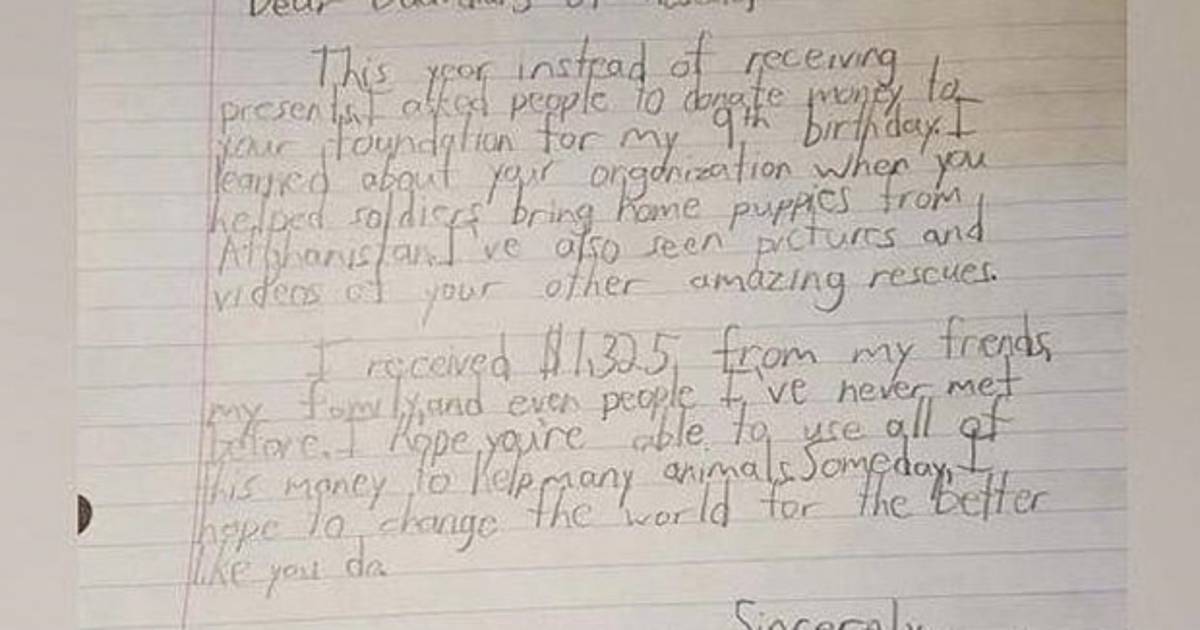 Dear Guardians of Rescue,
This year instead of receiving
presents, I asked people to donate money to
your foundation for my 9th birthday. I
learned about your organization when you
helped soldiers bring home puppies from
Afghanistan. I've also seen pictures and
videos of your other amazing rescues.
I received $1,325 from my friends,
my family, and even people I've never met
before. I hope you're able to use all of
this money to help many animals. Someday, I
hope to change the world for the better
like you do.
Sincerely